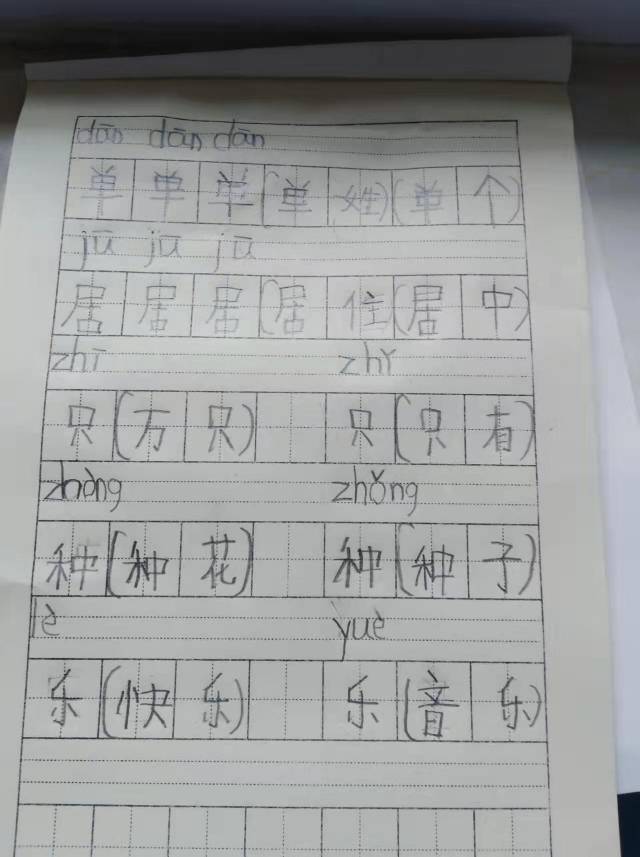 dān dān dān
单 单 单 (单 姓) (单 个)
jū jū jū
居 居 居 (居 住) (居 中)
zhī zhǐ
只 (万 只) 只 (只 有)
zhòng zhǒng
种 (种 花) 种 (种 子)
lè yuè
乐 (快 乐) 乐 (音 乐)